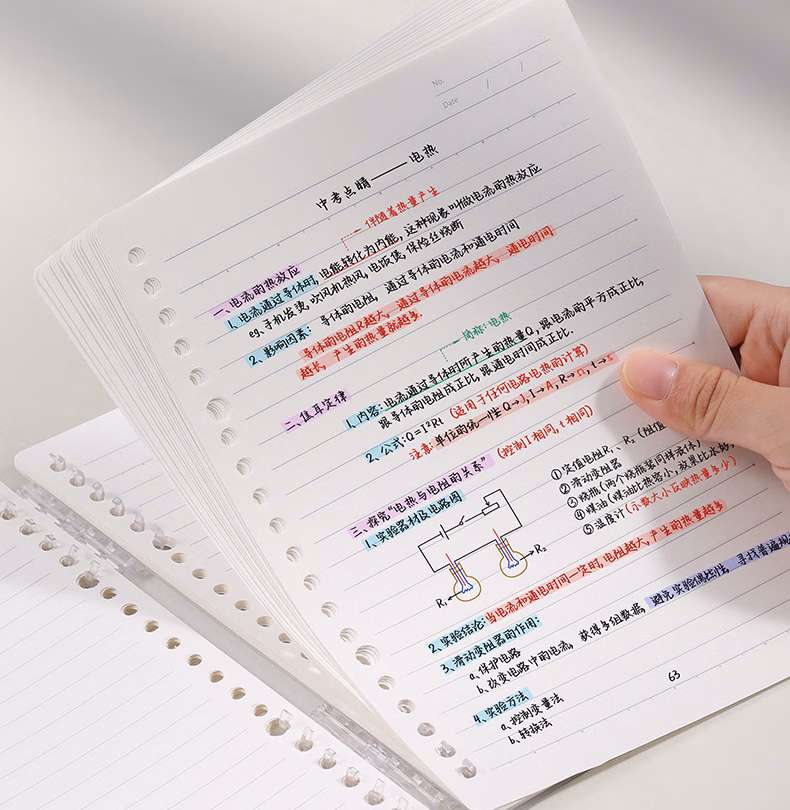 No.
Date / /
中考点睛——电热
伴随着热量产生
一、电流的热效应
1、电流通过导体时,电能转化为内能,这种现象叫做电流的热效应
eg:手机发烫,吹风机热风,电饭煲,保险丝烧断
2、影响因素: 导体的电阻, 通过导体的电流和通电时间
导体的电阻R越大, 通过导体的电流越大, 通电时间
越长, 产生的热量就越多.
简称:电热
二、焦耳定律
1、内容: 电流通过导体时所产生的热量Q, 跟电流的平方成正比,
跟导体的电阻成正比, 跟通电时间成正比.
2、公式: Q=I²Rt (适用于任何电路电热的计算)
注意: 单位的统一性 Q→J, I→A, R→Ω, t→s
三、探究"电热与电阻的关系" (控制I相同, t相同)
1、实验器材及电路图
①定值电阻R₁、R₂ (阻值
②滑动变阻器
③烧瓶 (两个烧瓶装同样液体)
④煤油 (煤油比热容小, 效果比水好,
⑤温度计 (示数大小反映热量多少)
R₁ R₂
2、实验结论: 当电流和通电时间一定时, 电阻越大, 产生的热量越多
3、滑动变阻器的作用:
a、保护电路
b、改变电路中的电流, 获得多组数据, 避免实验偶然性, 寻找普遍规
4、实验方法
a、控制变量法
b、转换法
63